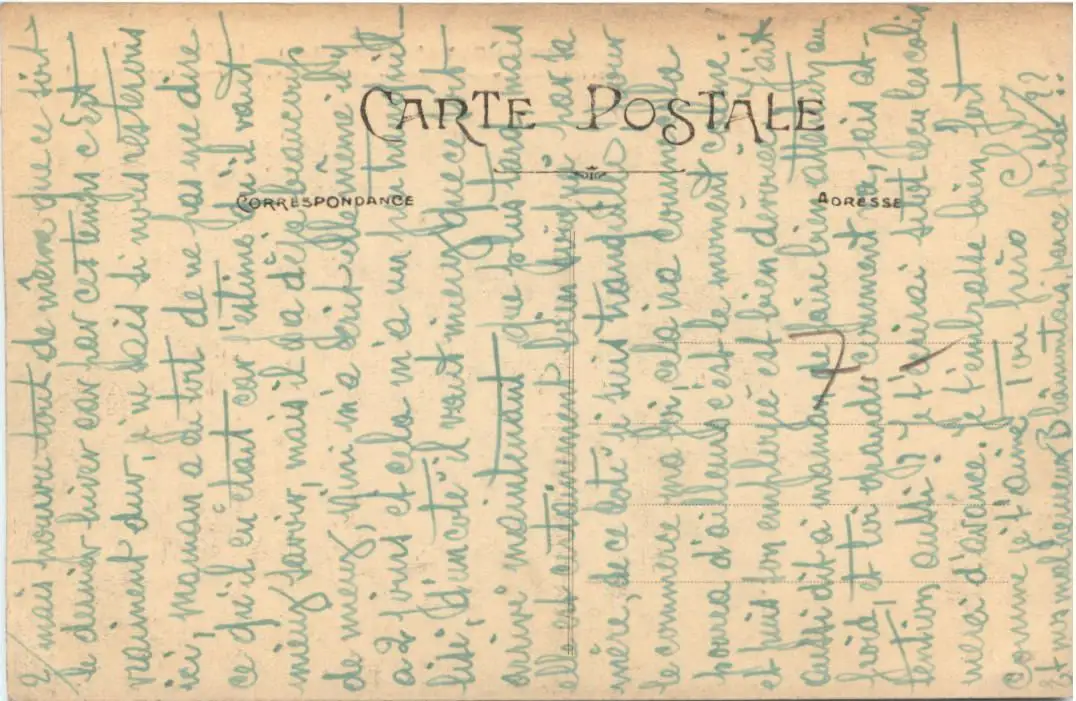 CARTE POSTALE
CORRESPONDANCE
ADRESSE
7 -
2/ mais pourvu tout de même que ce soit
le dernier hiver car par ces temps c'est
vraiment dur, je ne sais si nous resterons
ici, maman a eu tort de ne pas me dire
ce qu'il en était car j'estime qu'il vaut
mieux savoir, mais il y a déjà beaucoup
de mieux, Mimi m'a écrit elle même il y
a 2 jours et cela m'a un peu tranquil-
lisé, d'un coté il vaut mieux que ce soit
arrivé maintenant que plus tard mais
elle est certainement bien bien par ta
mère, de ce coté je suis tranquille pour
le commerce ma foi cela ira comme cela
pourra d'ailleurs c'est le moment creux
et puis ton employé est bien dévoué j'ai
aussi dit à maman de faire bien attention au
froid, et toi grande comment vas, fais at-
tention aussi, je t'écrirai sitôt reçu les colis
merci d'avance. Je t'embrasse bien fort
Comme je t'aime Ton frère
et mes malheureux